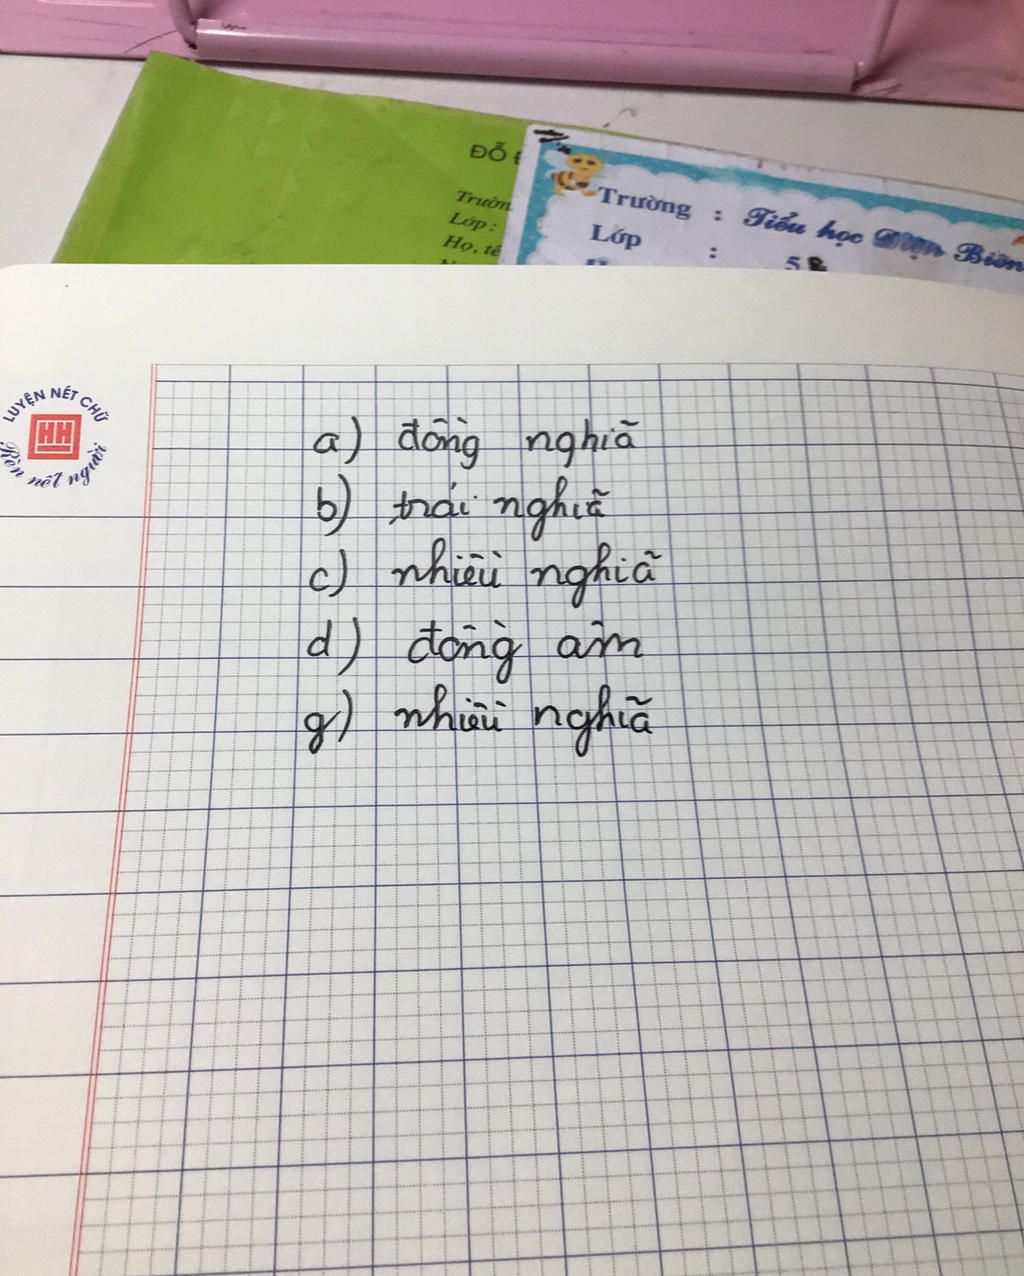 ĐỖ
Trườn
Lớp :
Họ, tê
Trường : Tiểu học Điện Biên
Lớp : 5B
LUYỆN NÉT CHỮ
HH
Rèn nết người
a) đồng nghĩa
b) trái nghĩa
c) nhiều nghĩa
d) đồng âm
g) nhiều nghĩa